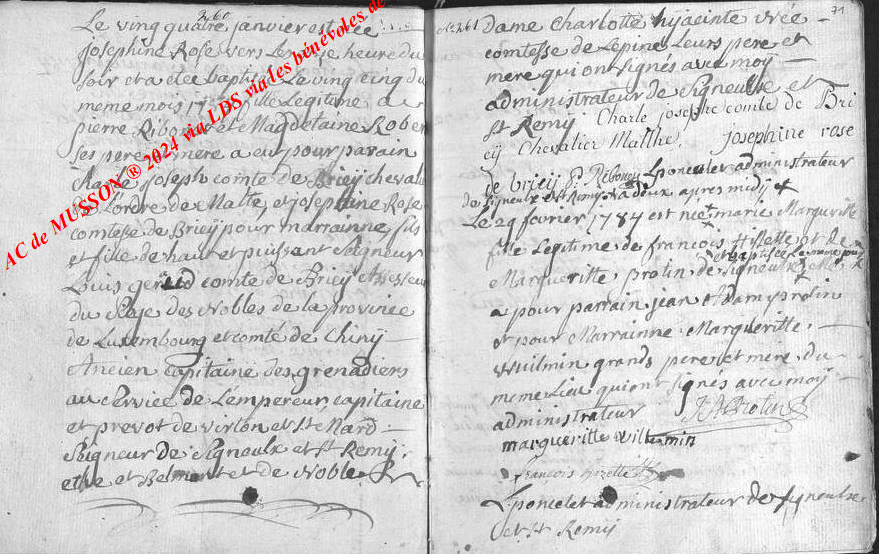 260
Le vingt quatre janvier est née
Josephine Rose vers heure du
soir et a été baptisé Le vingt cinq du
meme mois fille Legitime a
pierre Ribonet et Magdelaine Rober
ses pere et mere a eu pour parain
Charle Joseph comte de Briey cheval
de L'ordre de Malte, et Josephine Rose
comtesse de Briey pour marrainne fils
et fille de haut et puissant Seigneur
Louis comte de Briey Assesseur
du siege des Nobles de la province
de Luxembourg et comté de Chiny
Ancien capitaine des grenadiers
au service de L'empereur, capitaine
et prevot de virton et St Mard
Seigneur de Signeulx et St Remy
ethe et Belmont et de Noble
AC de MUSSON ® 2024 via LDS via les bénévoles de
71
N 261
Dame Charlotte hyacinte née
comtesse de Lepine Leurs pere et
mere qui ont signés avec moy
administrateur de Signeulx et
St Remy Charle josephe comte de Bri
ey Chevalier Malthe. Josephine rose
de briey P. Ribonet L poncelet administrateur
de Signeulx et St Remy a deux apres midy
Le 29 fevrier 1784 est née marie Margueritte
fille Legitime de francois Hizette et de
et baptisée Le meme jour
Margueritte protin de Signeulx
a pour parrain jean Adamy protin
et pour Marrainne Margueritte
Wuilmin grands pere et mere du
meme Lieu qui ont signés avec moy
administrateur JA Protin
margueritte vuillemin
francois hizette
L poncelet administrateur de Signeulx
et St Remy